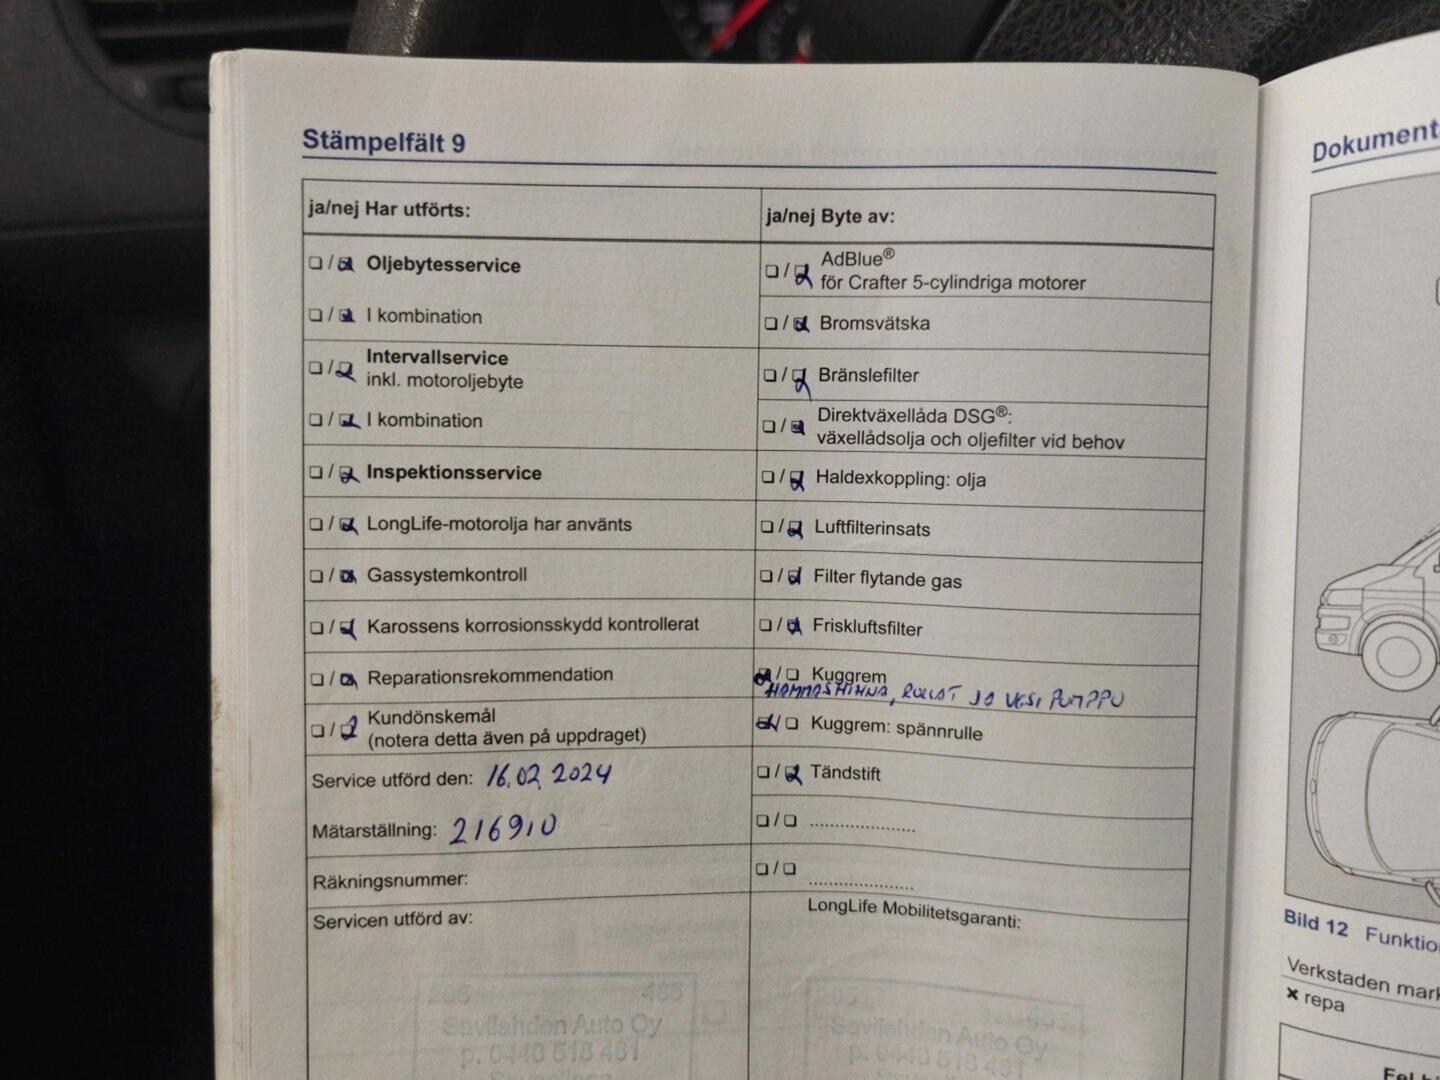 Stämpelfält 9
ja/nej Har utförts:
☐ / ☑ Oljebytesservice
☐ / ☑ I kombination
☐ / ☑ Intervallservice
inkl. motoroljebyte
☐ / ☑ I kombination
☐ / ☑ Inspektionsservice
☐ / ☑ LongLife-motorolja har använts
☐ / ☑ Gassystemkontroll
☐ / ☑ Karossens korrosionsskydd kontrollerat
☐ / ☑ Reparationsrekommendation
☐ / ☑ Kundönskemål
(notera detta även på uppdraget)
Service utförd den: 16.02.2024
Mätarställning: 216910
Räkningsnummer:
Servicen utförd av:
205 485
Savilahden Auto Oy
p. 0440 518 461
Savonlinna
ja/nej Byte av:
☐ / ☑ AdBlue®
för Crafter 5-cylindriga motorer
☐ / ☑ Bromsvätska
☐ / ☑ Bränslefilter
☐ / ☑ Direktväxellåda DSG®:
växellådsolja och oljefilter vid behov
☐ / ☑ Haldexkoppling: olja
☐ / ☑ Luftfilterinsats
☐ / ☑ Filter flytande gas
☐ / ☑ Friskluftsfilter
☑ / ☐ Kuggrem
HAMMASHIHNA, RULLAT JA VESIPUMPPU
☑ / ☐ Kuggrem: spännrulle
☐ / ☑ Tändstift
☐ / ☐ ....................
☐ / ☐ ....................
LongLife Mobilitetsgaranti:
205 485
Savilahden Auto Oy
p. 0440 518 461
Dokument
Bild 12 Funktio
Verkstaden mark
✗ repa